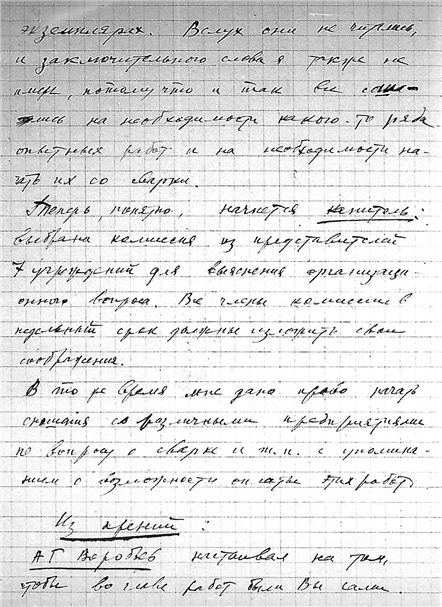 экземплярах. Вслух они не читались,
и заключительного слова я также не
имел, потому что и так все сош-
лись на необходимости какого-то ряда
опытных работ и на необходимости на-
чать их со сварки.
Теперь, понятно, начнется канитель:
выбрана комиссия из представителей
7 учреждений для выяснения организаци-
онного вопроса. Все члены комиссии в
недельный срок должны изложить свои
соображения.
В то же время мне дано право начать
сношения с различными предприятиями
по вопросу о сварке и т.п. с упомина-
нием о возможности оплаты этих работ.
Из прений:
А Г Воробьев настаивал на том,
чтобы во главе работ были Вы сами.